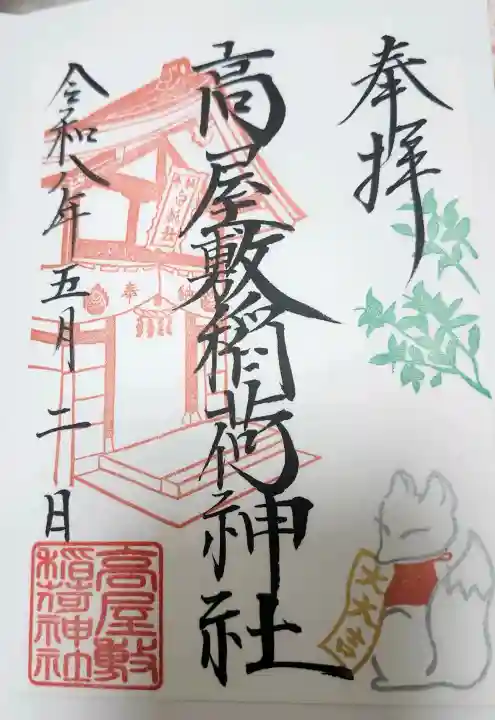 奉拝
高屋敷稲荷神社
令和八年五月二日
奉納
大大吉
高屋敷
稲荷神社